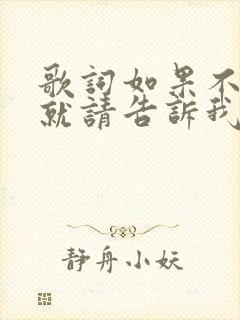 歌詞如果不
就請告訴我
静舟小妖